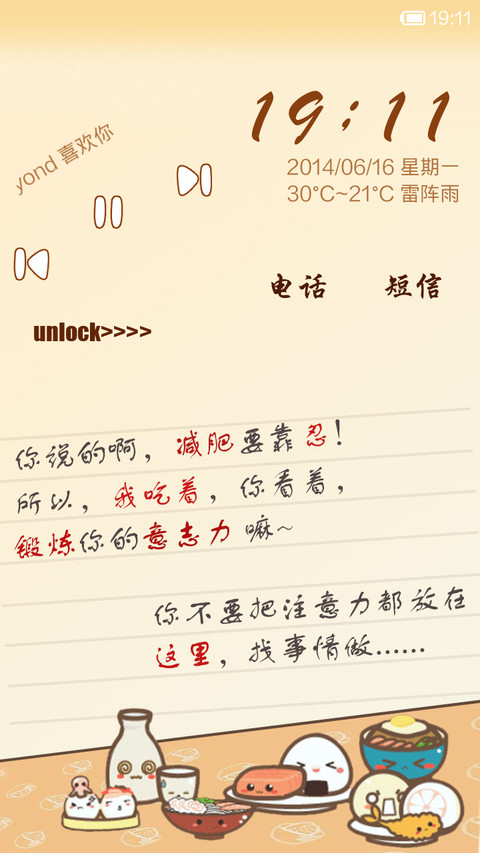 19:11
19:11
2014/06/16 星期一
30°C~21°C 雷阵雨
yond 喜欢你
电话 短信
unlock>>>>
你说的啊，减肥要靠忍！
所以，我吃着，你看着，
锻炼你的意志力嘛~
你不要把注意力都放在
这里，找事情做……